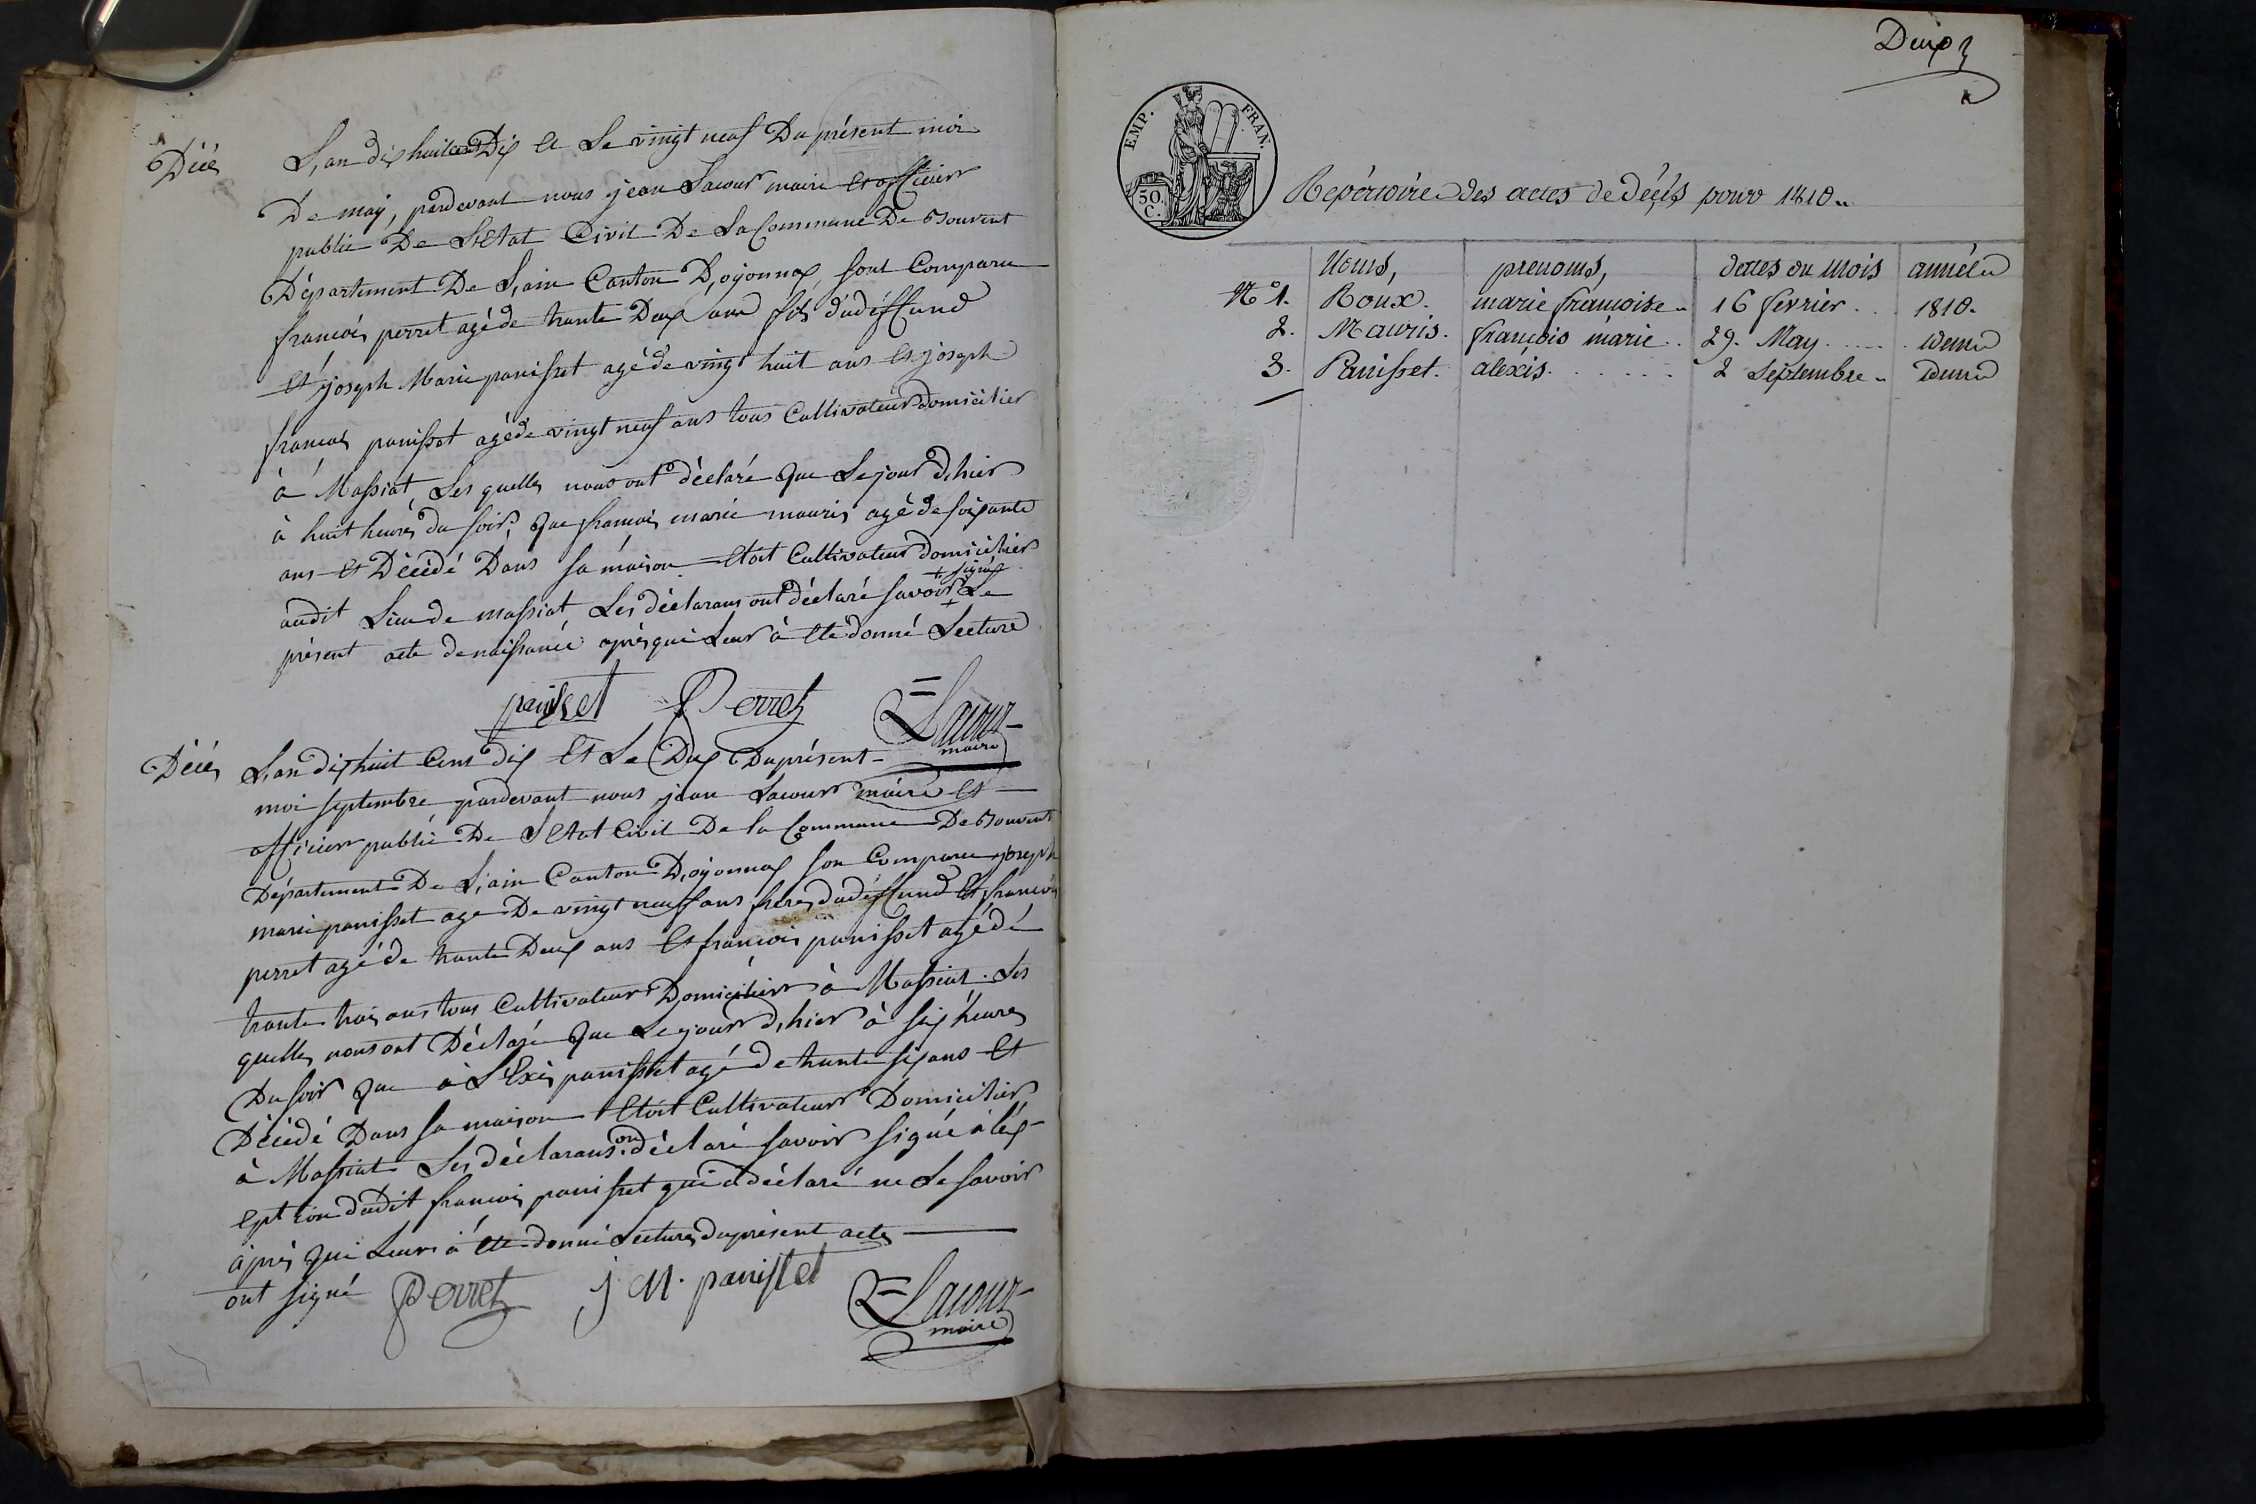 Décés
L,an dix huit cent Dix et Le vingt neuf Du présent moi
De may, pardevant nous jean Lacour maire et officier
public De L'Etat Civil De La Commune De Bouvent
Département De L,ain Canton D,oyonnax sont Comparu
francois perret agé de trante Deux ans fils du déffund
Et joseph Marie panisset agé de vingt huit ans Et joseph
francois panisset agé de vingt neuf ans tous Cultivateur domicilier
à Massiat, Les quelles nous ont déclaré que Le jour d,hier
à huit heures du soir, que francois marie mauris agé de soixante
ans Et Décédé Dans sa maison Etoit Cultivateur domicilier
audit Lieu de massiat Les déclarans ont déclaré savoir + signé Le
présent acte de naissance après que Leur à Eté donné Lecture
panisset Perret Lacour
maire
Décés
L,an dix huit Cent dix Et Le Dux Du présent
moi septembre pardevant nous jean Lacour maire et
officier public De L'Etat Civil De la Commune De Bouvent
Département De L'ain Canton D,oyonnax son Comparu joseph
marie panisset age De vingt neuf ans frere du déffund Et francois
perret agé de trante Deux ans Et francois panisset agé de
trante trois ans tous Cultivateur Domicilier à Massiat. Les
quelles nous ont Déclaré que Le jour d,hier à six heures
Du soir que à L'Exis panisset agé de trante six ans Et
Décédé Dans sa maison Etoit Cultivateur Domicilier
à Massiat Les déclarans on déclaré savoir signé à L'éx-
Eption dudit francois panisset qui a déclaré ne Le savoir
après que Leur à Eté donné Lecture du présent acte
ont signé Perret j M. panisset Lacour
maire
EMP. FRAN.
50. C.
Repértoire des actes de déçés pour 1810..
Noms, prenoms, dattes du mois année
N° 1. Roux. marie francoise.. 16 fevrier... 1810.
2. Mauris. francois marie.. 29. May..... idem
3. Panisset. aléxis...... 2 Septembre.. idem